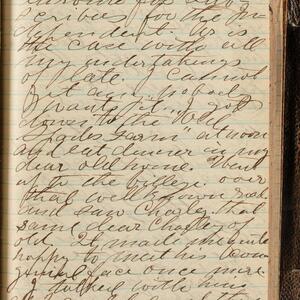 scribes for the In
dependent. As is
the case with all
my undertakings
of late. I cannot
nobody
wants it. I got
down to the "Old
Farm" at noon
and eat dinner in my
dear old home. Went
up in the village over
that well known road
and saw Charley. that
same dear Charley of
old. It made me quite
happy to meet his
face once more
I talked with him